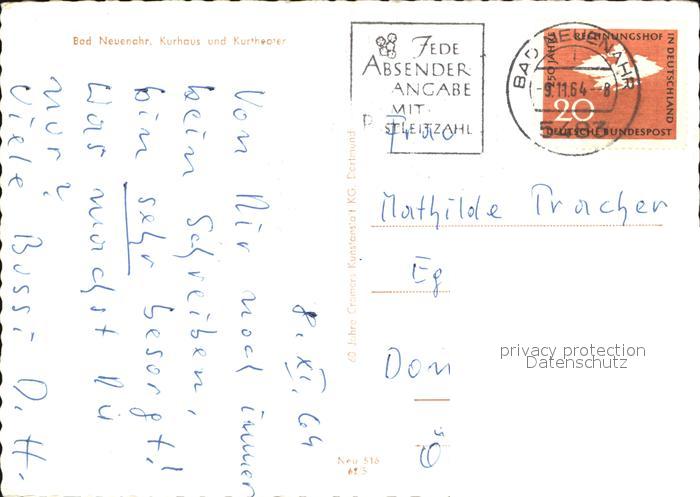 Bad Neuenahr, Kurhaus und Kurtheater
8. XI. 64
Von Dir noch immer
kein Schreiben,
bin sehr besorgt!
Was machst Du
nur?
Viele Bussi D. H.
60 Jahre Cramers Kunstanstalt KG. Dortmund
Neu 516
62 S
JEDE
ABSENDER-
ANGABE
MIT
POSTLEITZAHL
BAD NEUENAHR
-9.11.64-8
250 JAHRE RECHNUNGSHOF IN DEUTSCHLAND
20
DEUTSCHE BUNDESPOST
Frau
Mathilde Tracher
Eg
Don
Ö
privacy protection
Datenschutz